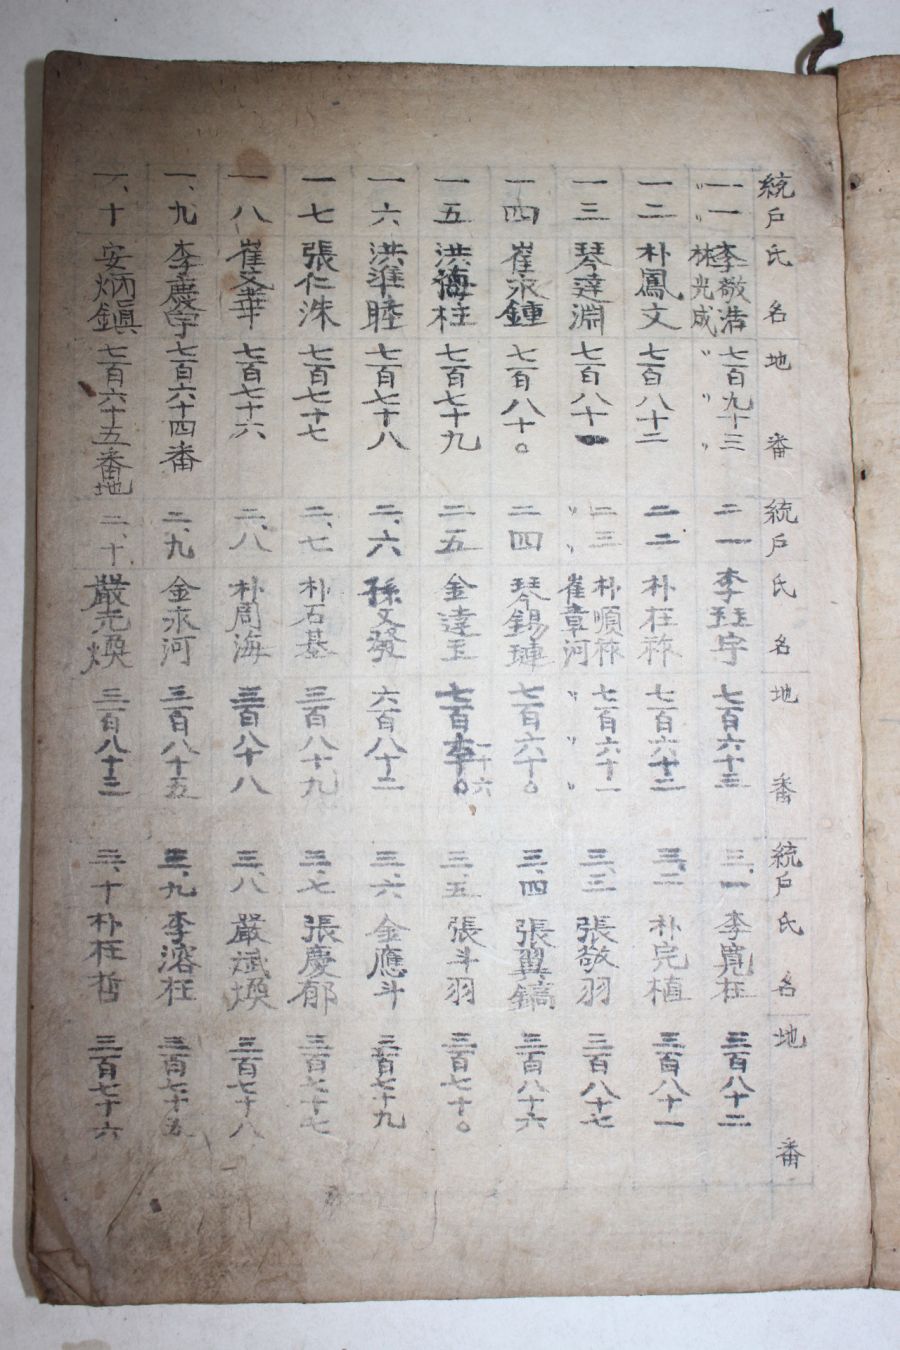 統戶 氏名 地番 統戶 氏名 地番 統戶 氏名 地番
一一 李敬浩 七百九十三 二一 李玨宇 七百六十三 三、一 李寬柱 三百八十二
〃 林光成 〃
一二 朴鳳文 七百八十二 二二 朴枉祚 七百六十二 三、二 朴完植 三百八十一
一三 琴達淵 七百八十一 二三 朴順祚 七百六十一 三、三 張敬羽 三百八十七
〃 崔章河 〃
一四 崔永鍾 七百八十〇 二四 琴錫璉 七百六十〇 三、四 張翼鎬 三百八十六
一五 洪海柱 七百七十九 二五 金達玉 七百 十六 三、五 張斗羽 三百七十〇
一六 洪準睦 七百七十八 二、六 孫文發 六百八十二 三、六 金應斗 三百七十九
一七 張仁洙 七百七十七 二、七 朴石基 三百八十九 三、七 張慶郁 三百七十七
一八 崔文華 七百七十六 二、八 朴周海 三百八十八 三、八 嚴斌煥 三百七十八
一、九 李慶宇 七百六十四番 二、九 金永河 三百八十五 三、九 李溶枉 三百七十五
一、十 安炳鎭 七百六十五番地 二、十 嚴光煥 三百八十三 三、十 朴枉哲 三百七十六